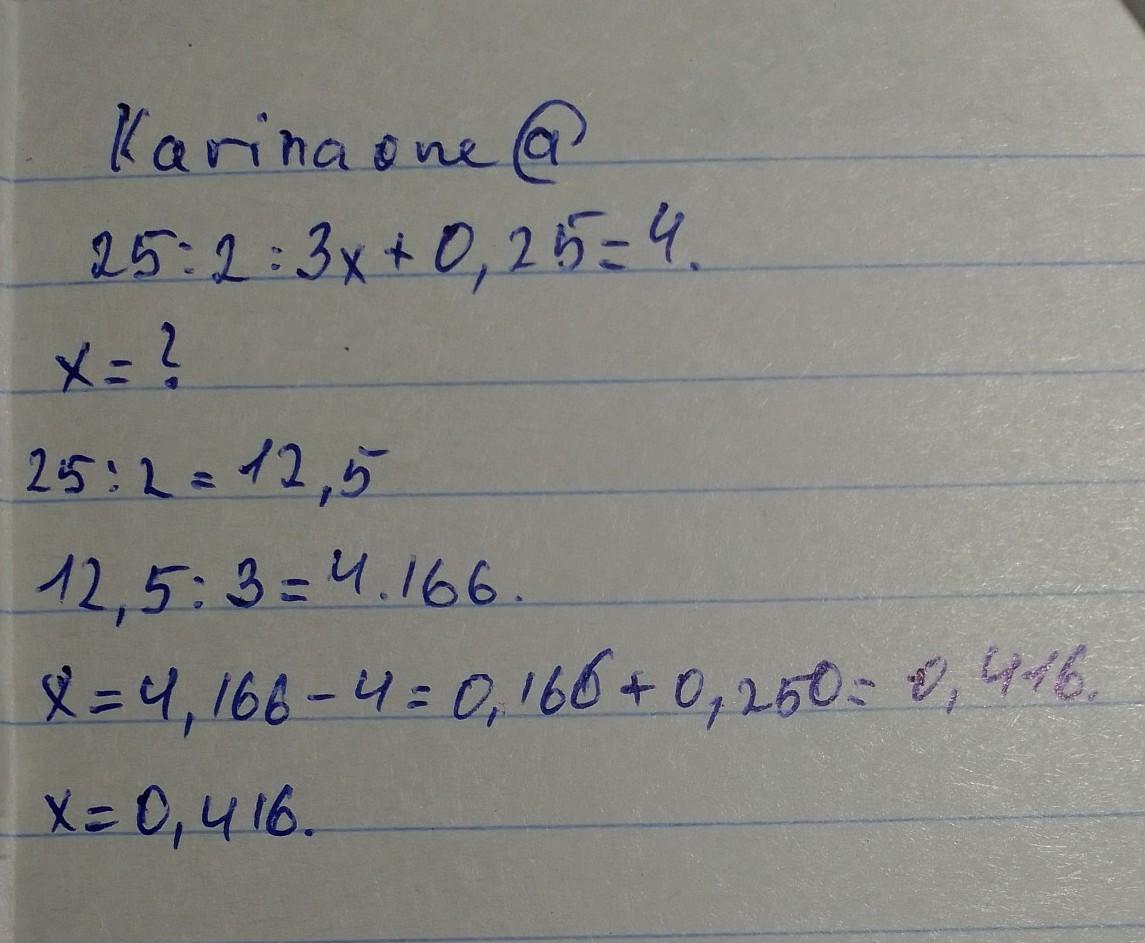 Karina one @
25:2:3x+0,25=4.
x=?
25:2=12,5
12,5:3=4.166.
x=4,166-4=0,166+0,250=0,416.
x=0,416.